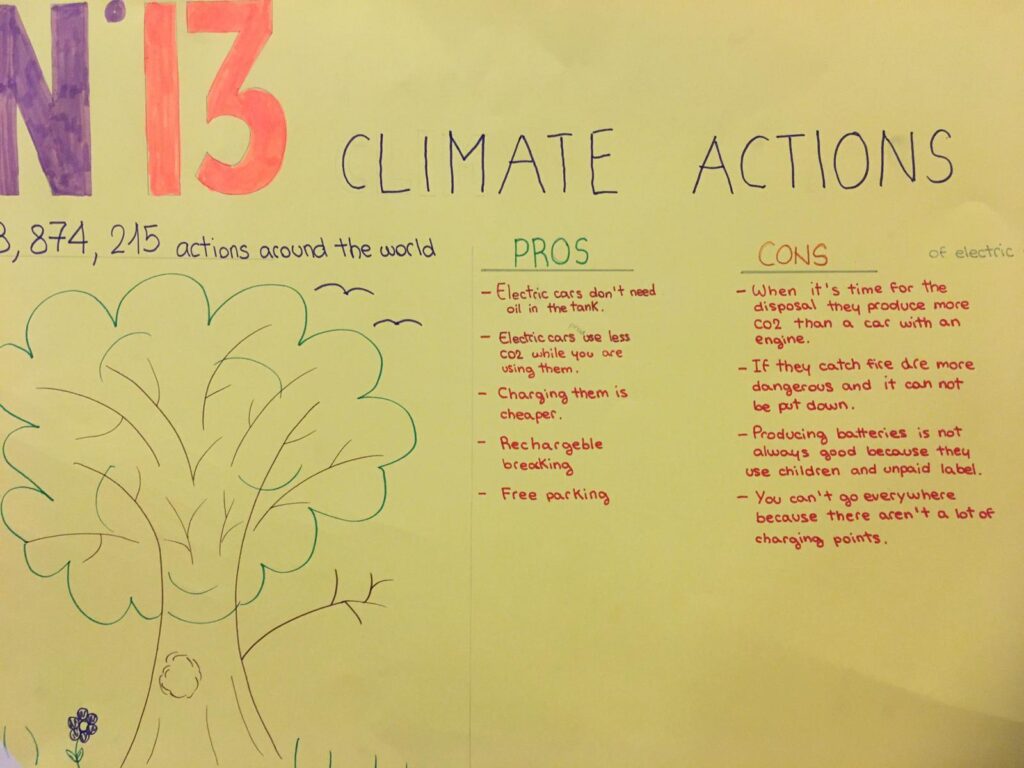 N°13
CLIMATE ACTIONS
3, 874, 215 actions around the world
PROS
- Electric cars don't need
oil in the tank.
- Electric cars use less
CO2 while you are
using them.
- Charging them is
cheaper.
- Rechargeble
breaking
- Free parking
CONS
of electric
- When it's time for the
disposal they produce more
CO2 than a car with an
engine.
- If they catch fire are more
dangerous and it can not
be put down.
- Producing batteries is not
always good because they
use children and unpaid label.
- You can't go everywhere
because there aren't a lot of
charging points.